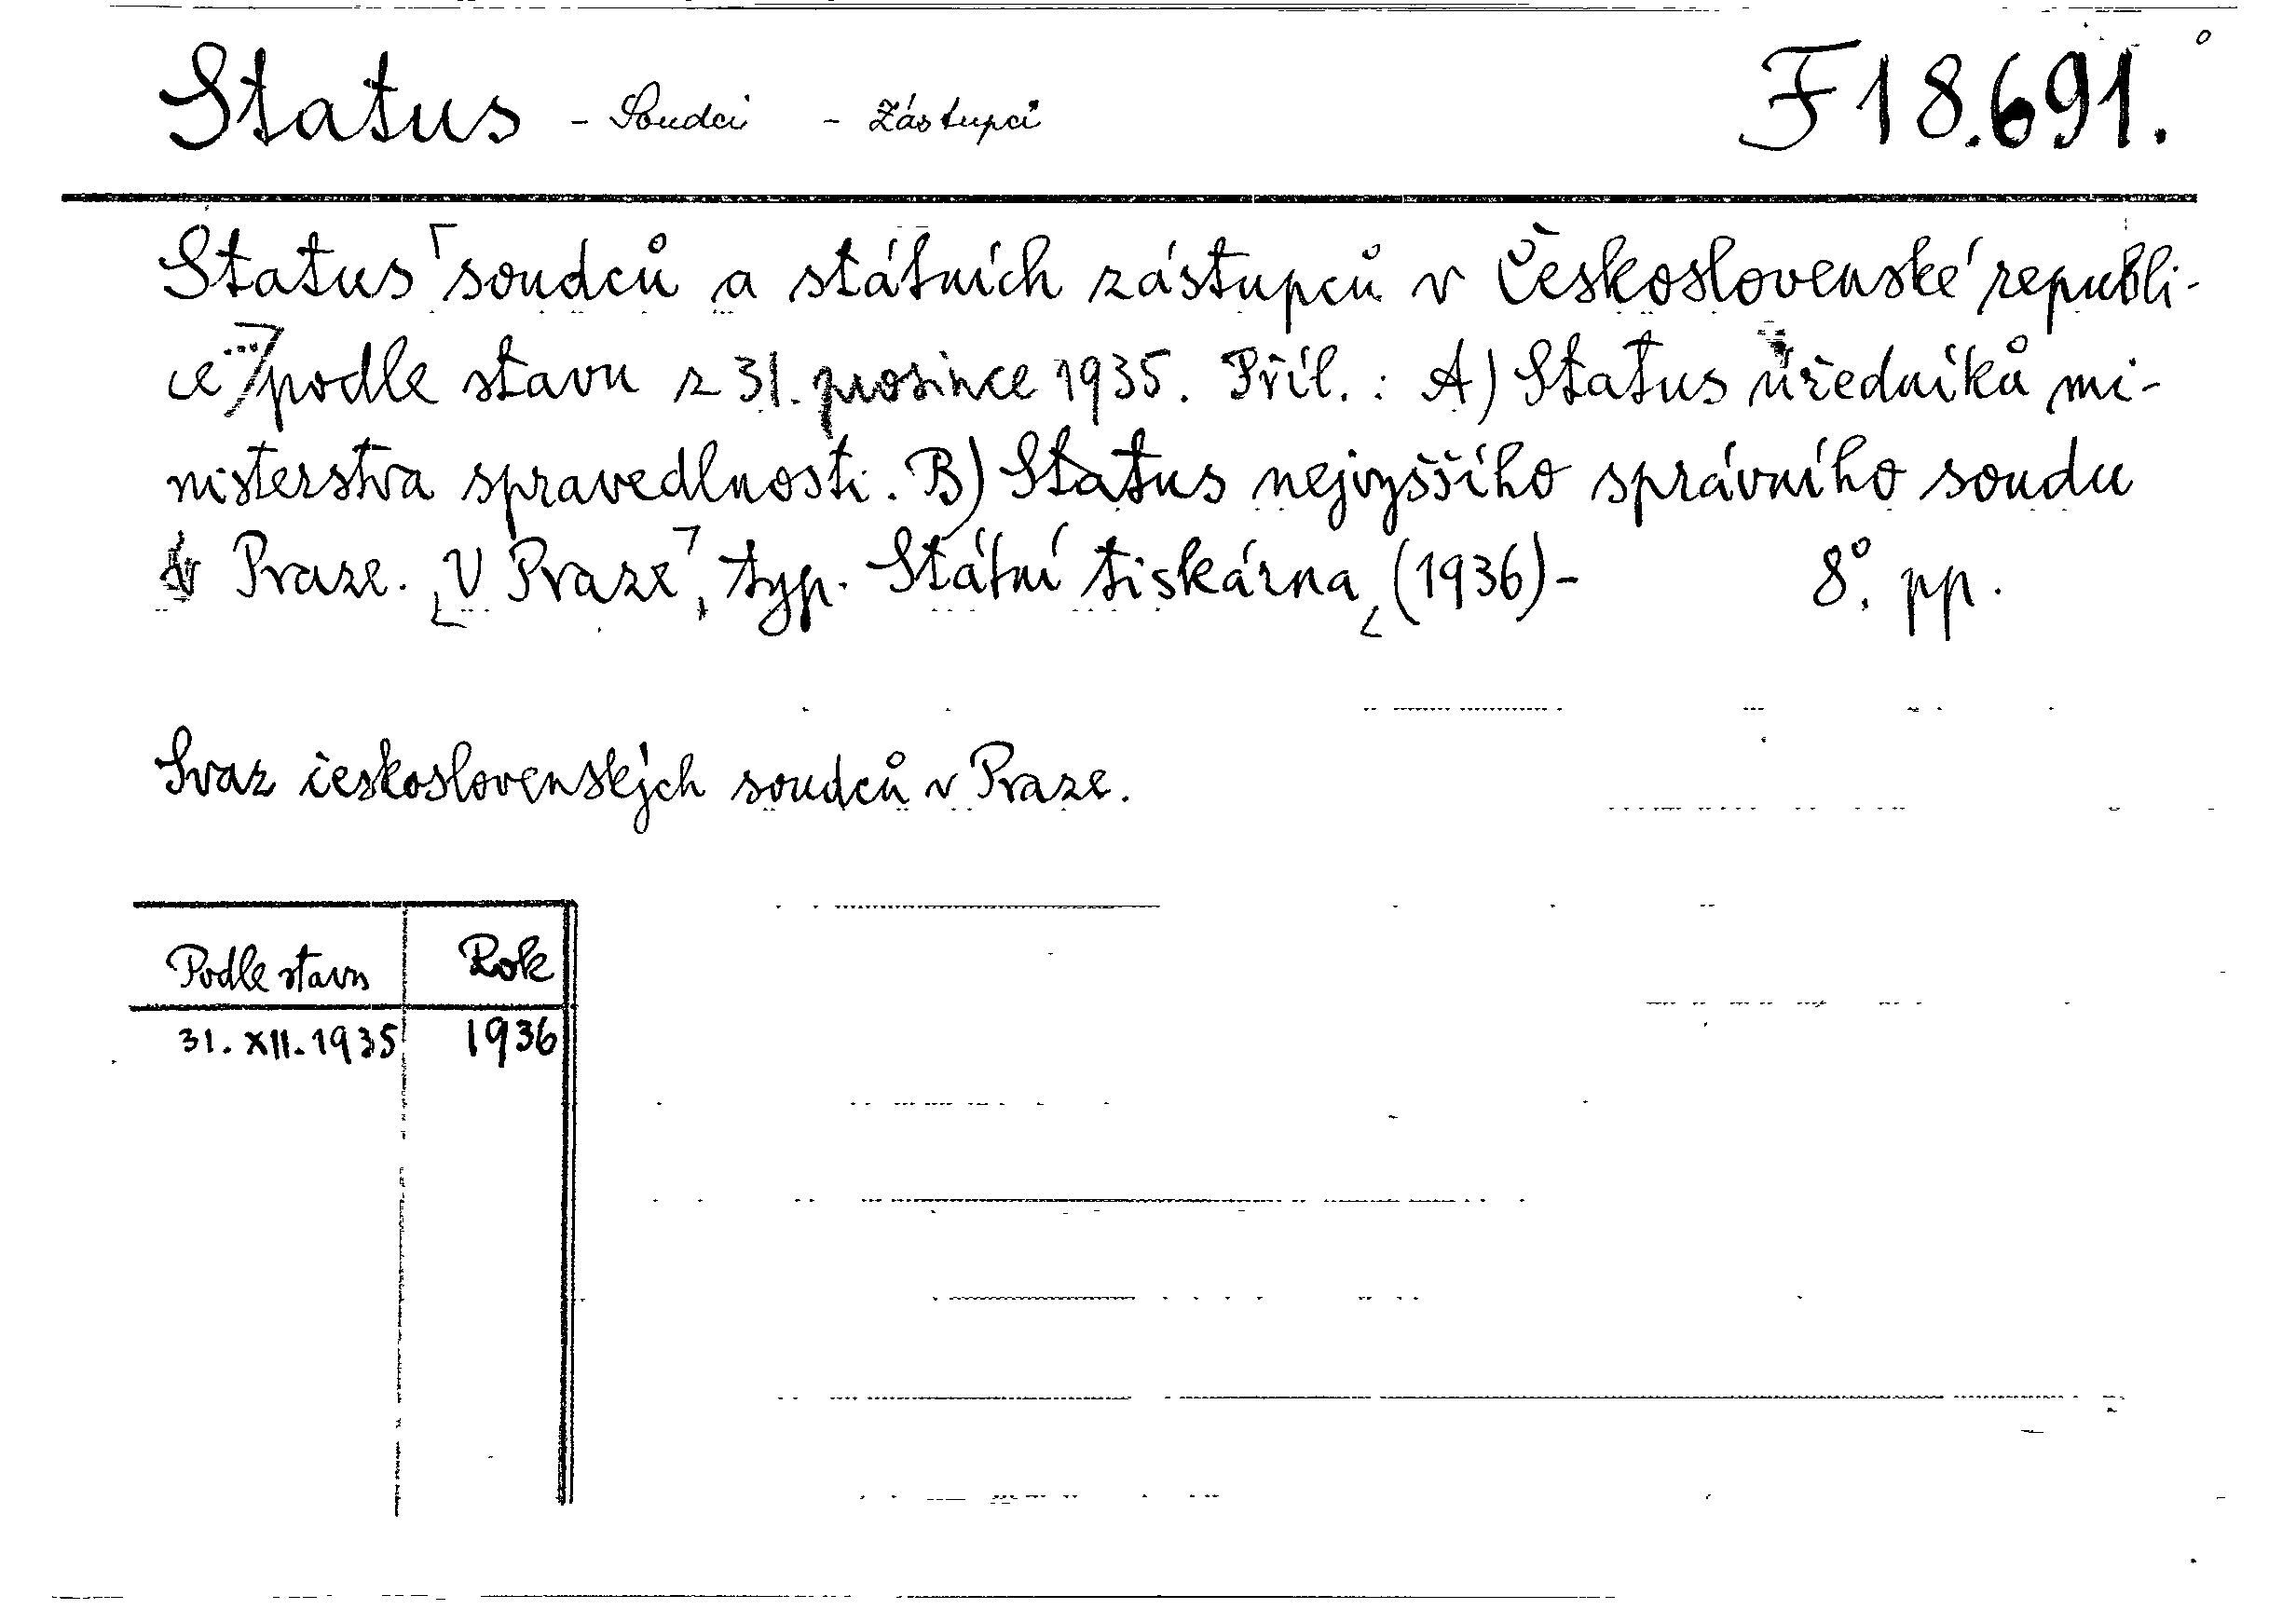 Status - Soudci - Zástupci F 18.691.
Status ⌜soudců a státních zástupců v Československé republi-
ce ...⌝ podle stavu z 31. prosince 1935. Příl.: A) Status úředníků mi-
nisterstva spravedlnosti. B) Status nejvyššího správního soudu
v Praze. ⌞V Praze⌝, typ. Státní tiskárna, (1936)- 8°. pp.
Svaz československých soudců v Praze.
Podle stavu Rok
31. XII. 1935 1936